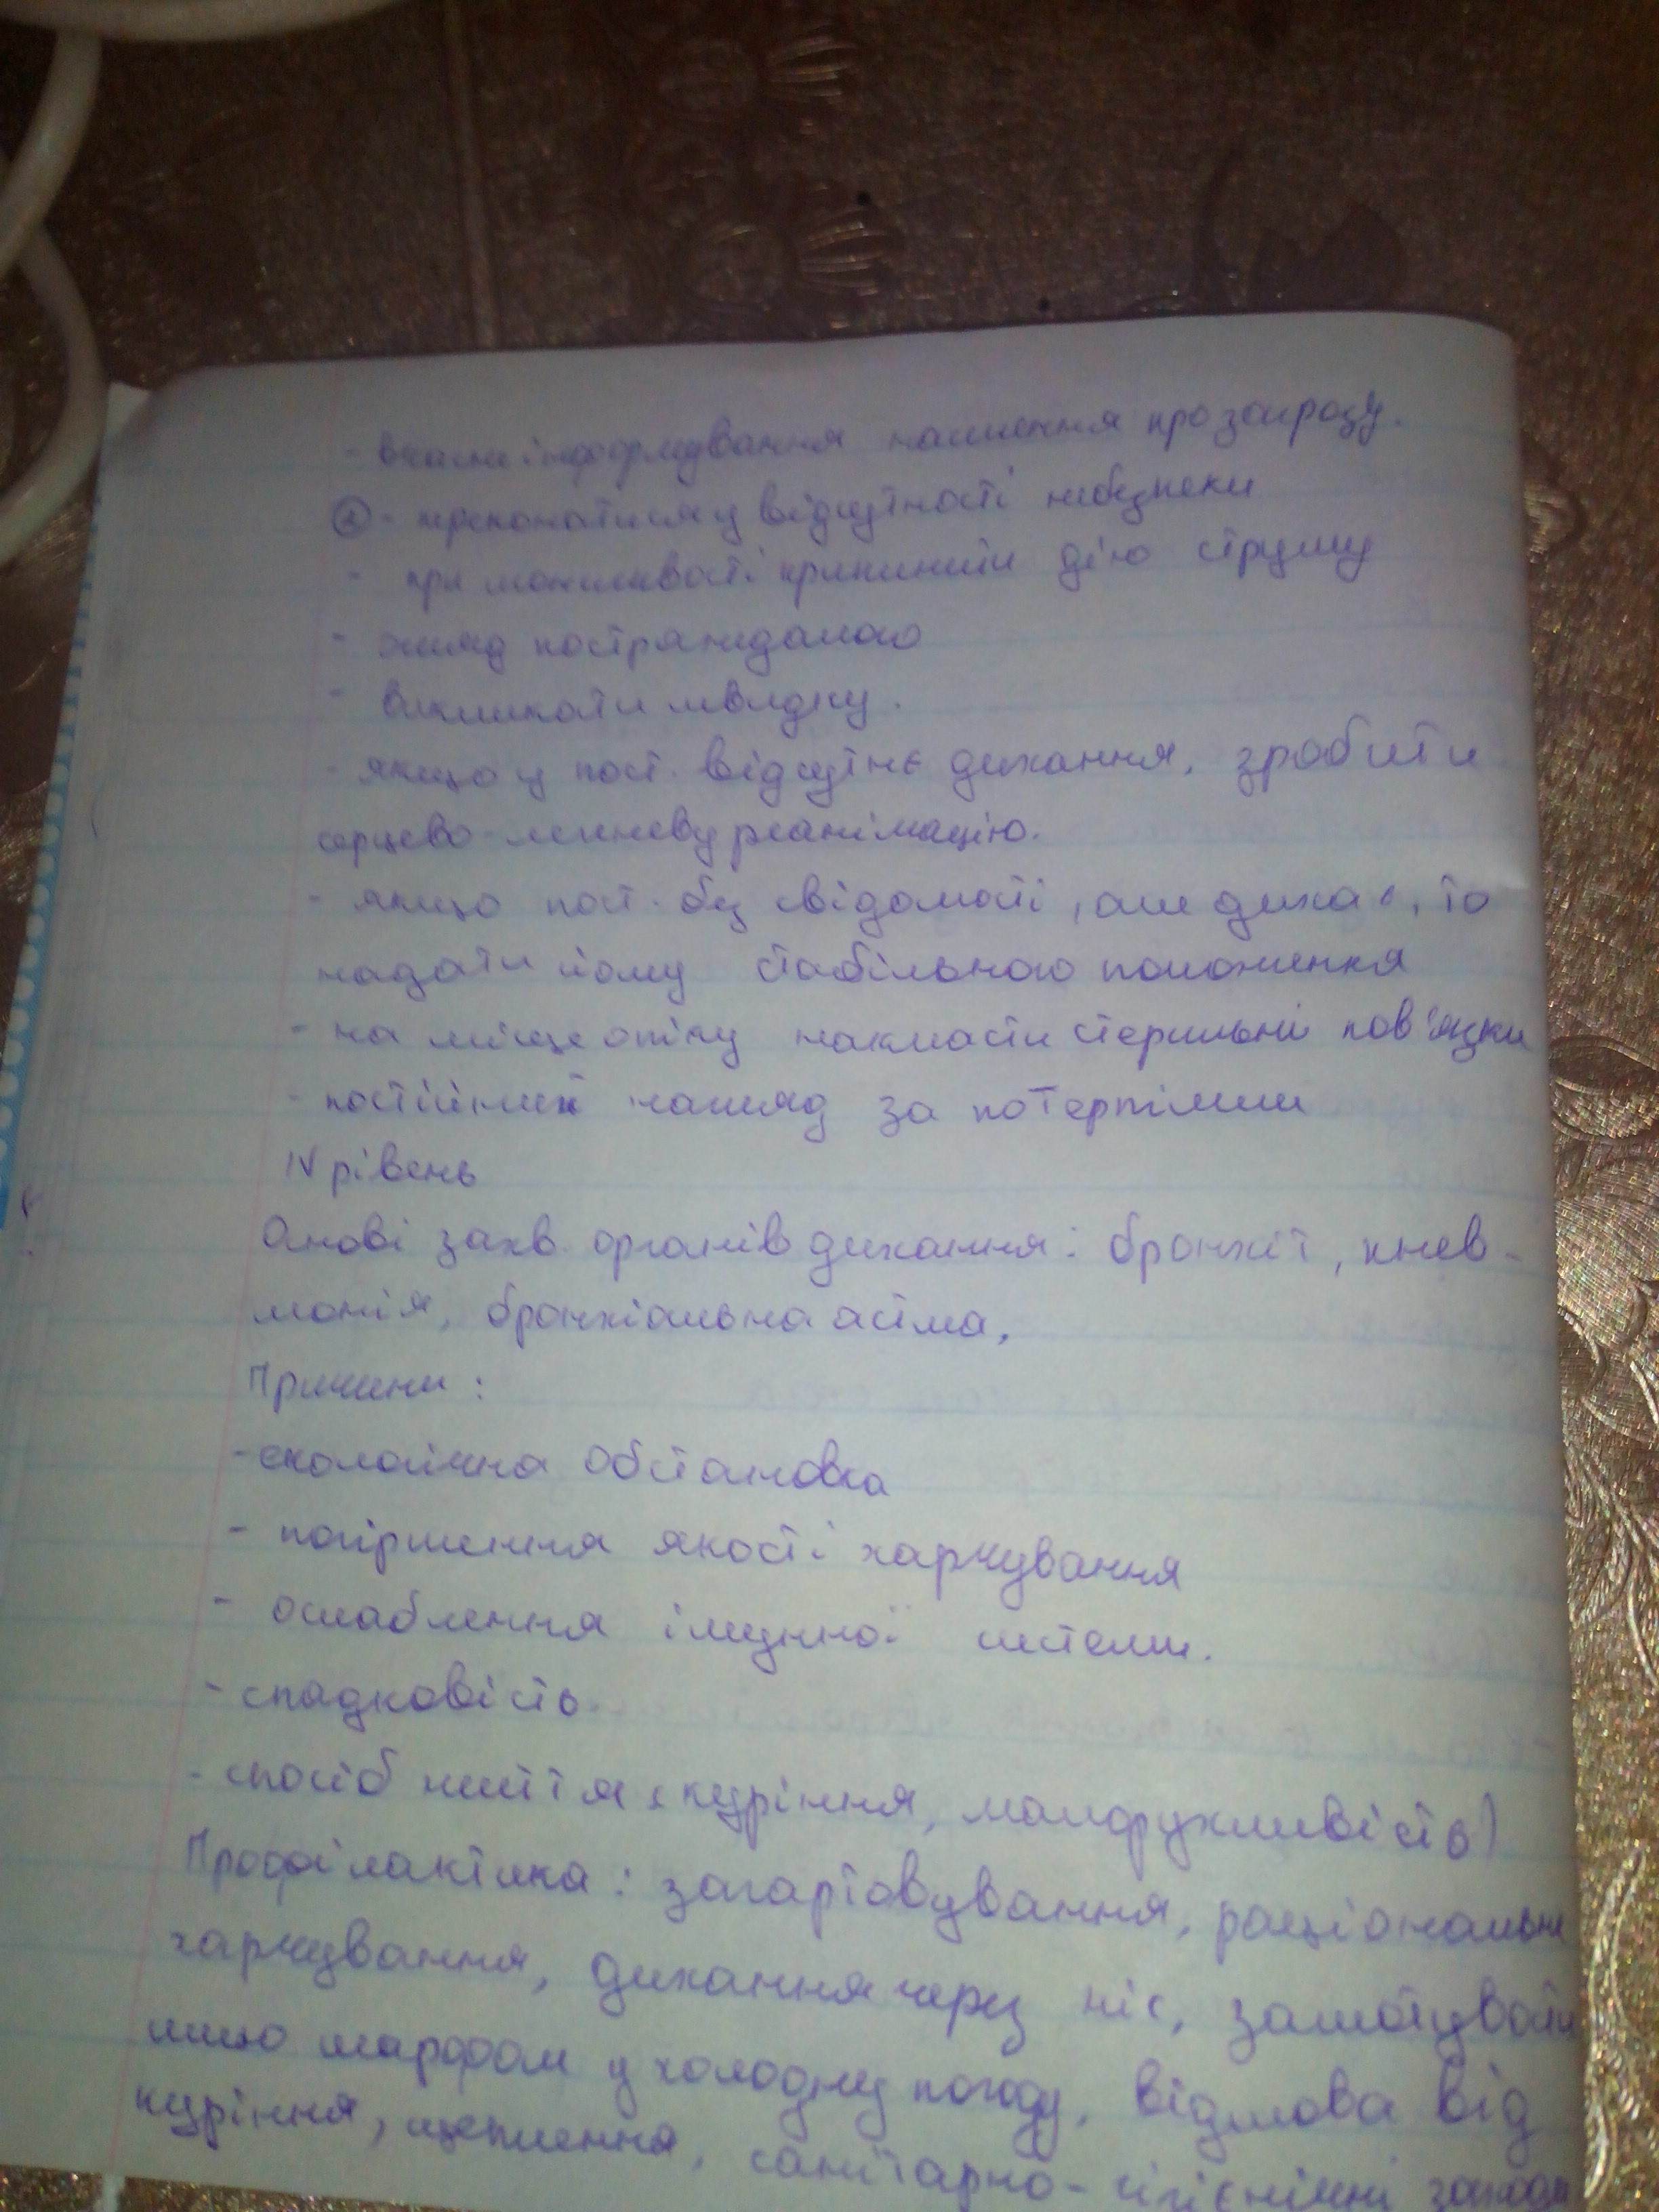 - вчасне інформування населення про загрозу.
② - переконатися у відсутності небезпеки
- при можливості припинити дію струму
- огляд постраждалого
- викликати швидку.
- якщо у пост. відсутнє дихання, зробити
серцево-легеневу реанімацію.
- якщо пост. без свідомості, але дихає, то
надати йому стабільного положення
- на місце опіку накласти стерильні пов'язки
- постійний нагляд за потерпілим
IV рівень
Основі захв. органів дихання: бронхіт, пнев-
монія, бронхіальна астма,
Причини:
- екологічна обстановка
- погіршення якості харчування
- ослаблення імунної системи.
- спадковість.
- спосіб життя (куріння, малорухливість)
Профілактика: загартовування, раціональне
харчування, дихання через ніс, замотувати
шию шарфом у холодну погоду, відмова від
куріння, щеплення, санітарно-гігієнічні заходи